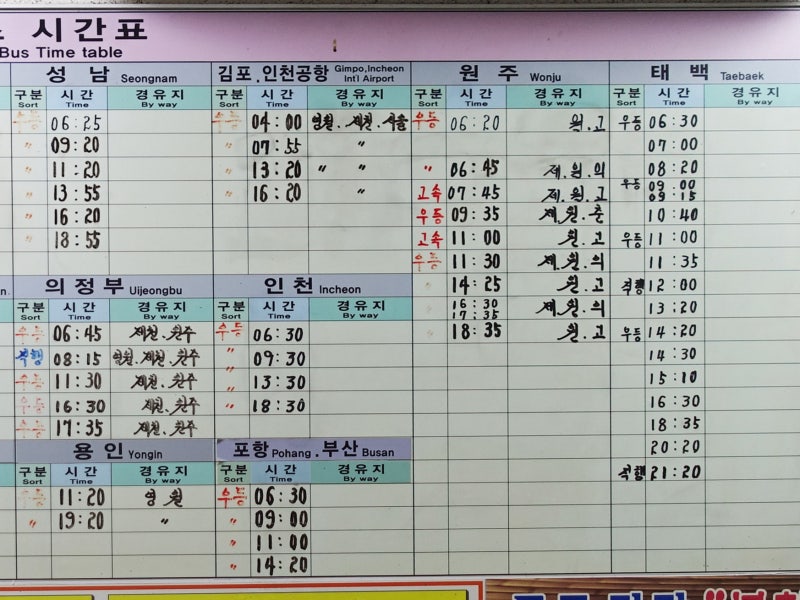 시간표
Bus Time table
성 남 Seongnam
구분 Sort 시 간 Time 경 유 지 By way
우등 06:25
〃 09:20
〃 11:20
〃 13:55
〃 16:20
〃 18:55
김포.인천공항 Gimpo,Incheon Int'l Airport
구분 Sort 시 간 Time 경 유 지 By way
우등 04:00 영월.제천.서울
〃 07:55 〃
〃 13:20 〃 〃
〃 16:20 〃
원 주 Wonju
구분 Sort 시 간 Time 경 유 지 By way
우등 06:20 원.고
〃 06:45 제.원.의
고속 07:45 제.원.고
우등 09:35 제.원.춘
고속 11:00 원.고
우등 11:30 제.원.의
〃 14:25 원.고
16:30
17:35 제.원.의
18:35 원.고
태 백 Taebaek
구분 Sort 시 간 Time 경 유 지 By way
우등 06:30
07:00
08:20
우등 09:00
09:15
10:40
우등 11:00
11:35
직행 12:00
13:20
우등 14:20
14:30
15:10
16:30
18:35
20:20
직행 21:20
의 정 부 Uijeongbu
구분 Sort 시 간 Time 경 유 지 By way
우등 06:45 제천.원주
직행 08:15 영월.제천.원주
우등 11:30 제천.원주
우등 16:30 제천.원주
우등 17:35 제천.원주
인 천 Incheon
구분 Sort 시 간 Time 경 유 지 By way
우등 06:30
〃 09:30
〃 13:30
〃 18:30
용 인 Yongin
구분 Sort 시 간 Time 경 유 지 By way
우등 11:20 영월
〃 19:20 〃
포항 Pohang .부산 Busan
구분 Sort 시 간 Time 경 유 지 By way
우등 06:30
〃 09:00
〃 11:00
〃 14:20